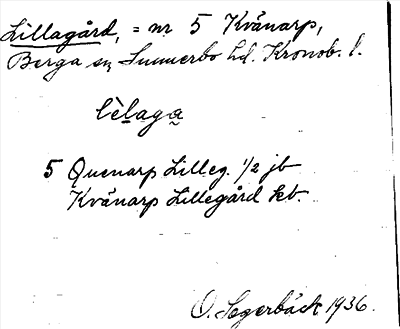 Lillagård, = nr 5 Kvänarp,
Berga sn Sunnerbo hd. Kronob. l.
lèlaga
5 Quenarp Lilleg. 1/2 jb
Kvänarp Lillegård kb.
O. Segerbäck 1936.